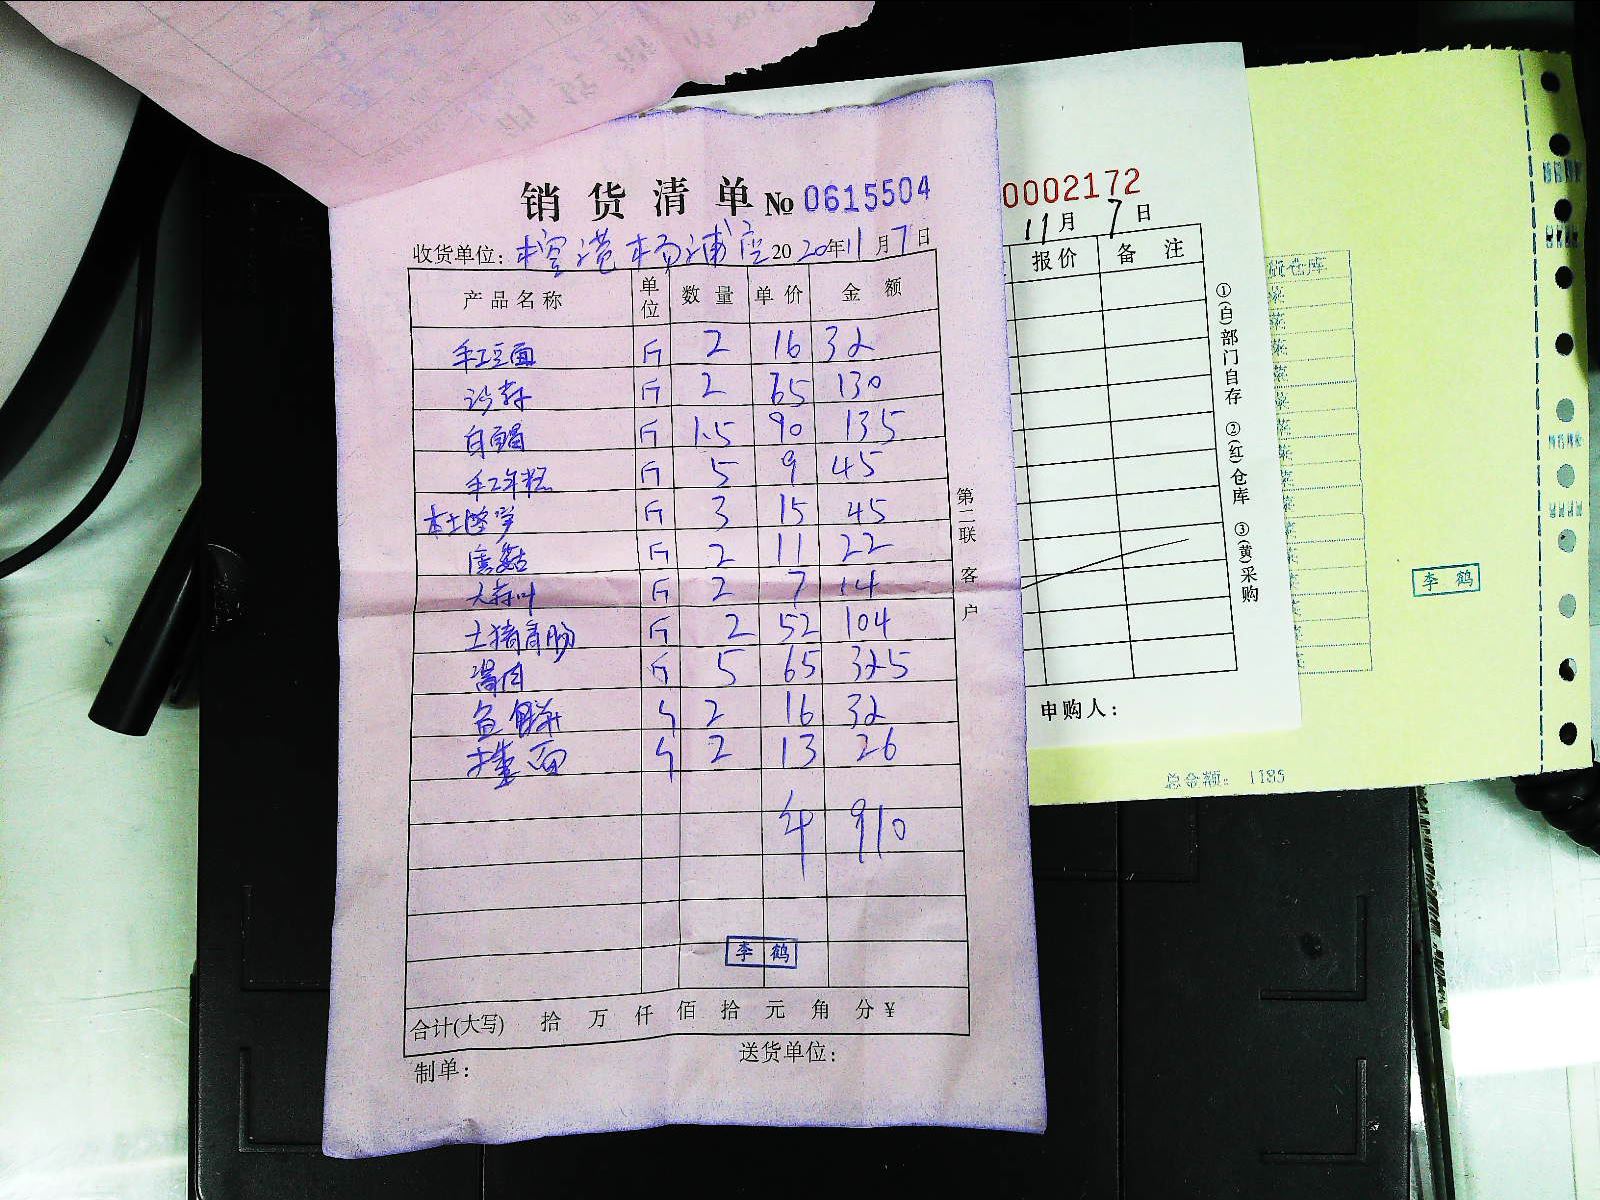 销货清单 № 0615504
收货单位: 杨浦店 2020年11月7日
产品名称 单位 数量 单价 金额
手工豆面 斤 2 16 32
沙蒜 斤 2 65 130
白鲳 斤 1.5 90 135
手工年糕 斤 5 9 45
本土 斤 3 15 45
蘑菇 斤 2 11 22
大蒜叶 斤 2 7 14
土猪青肠 斤 2 52 104
斤 5 65 325
鱼饼 2 16 32
面 2 13 26
910
李鹤
合计(大写) 拾 万 仟 佰 拾 元 角 分 ¥
制单: 送货单位:
第二联 客户
0002172
11月7日
报价 备注
①(白)部门自存 ②(红)仓库 ③(黄)采购
申购人:
仓库
菜
菜
菜
菜
菜
李鹤
总金额: 1185